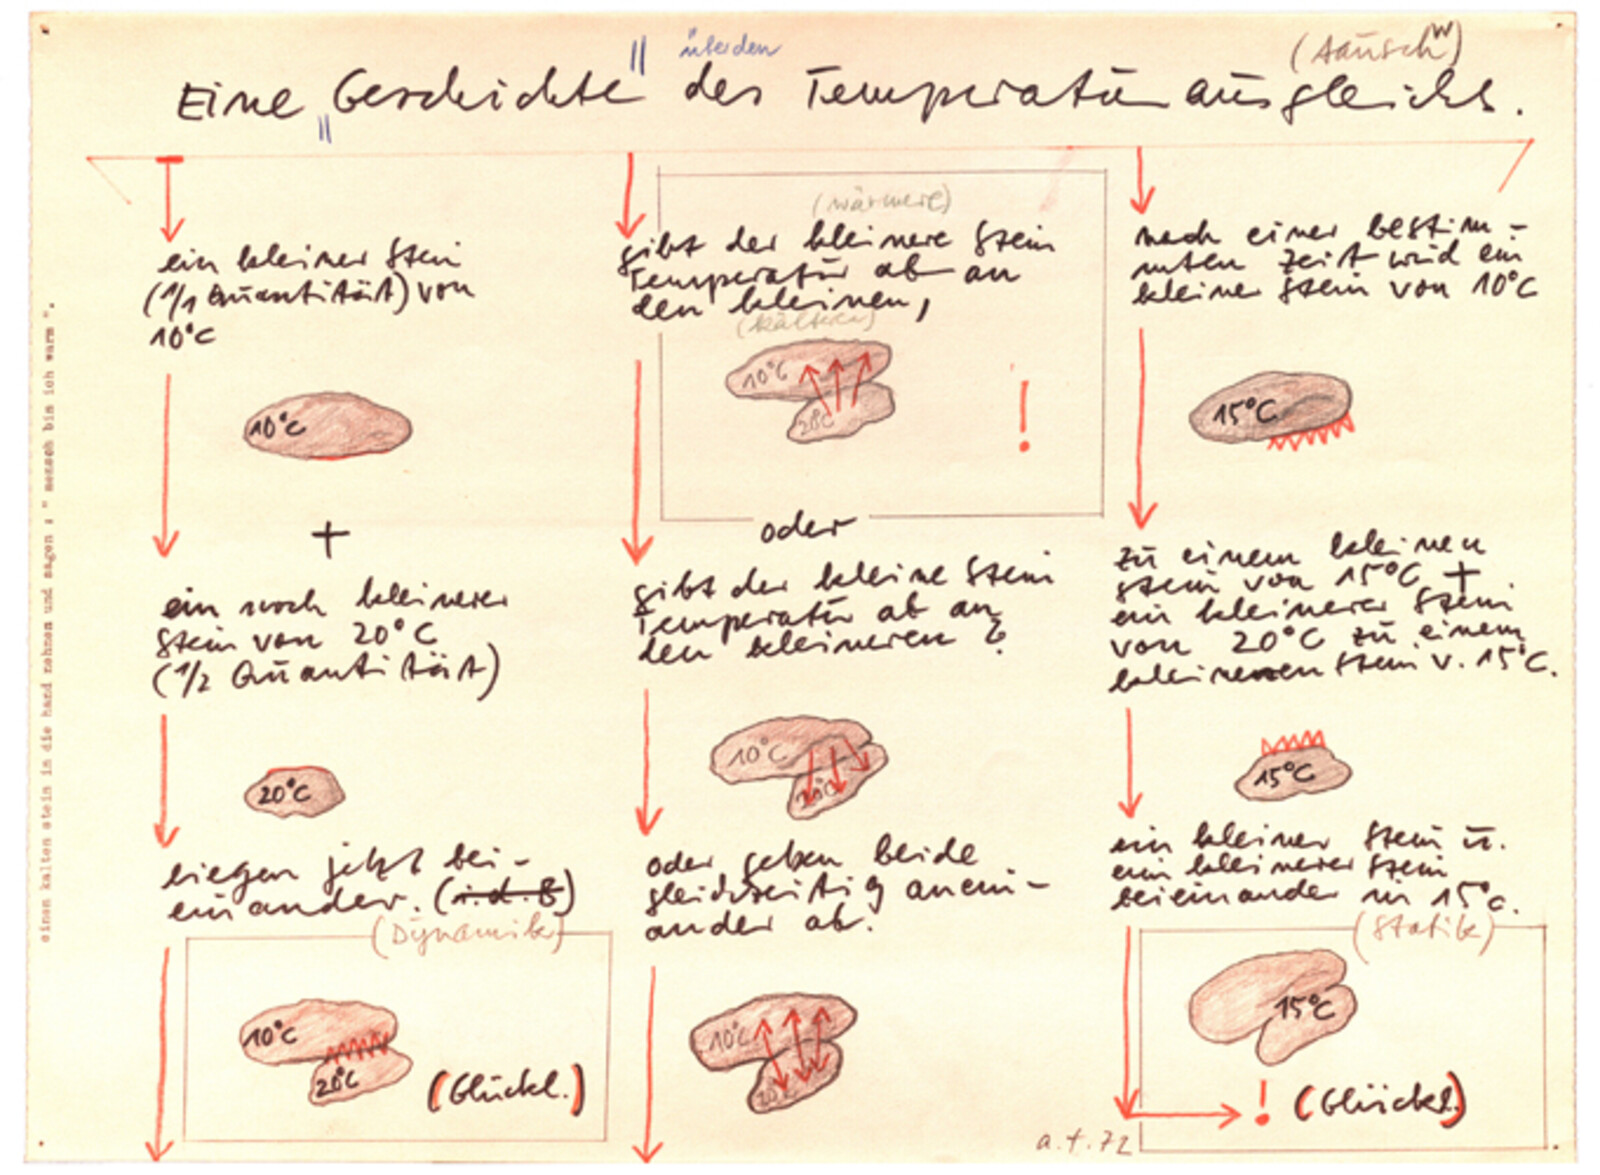 (täusch W)
"überden
Eine „Geschichte" des Temperaturausgleichs.
ein kleiner Stein
(1/1 Quantität) von
10°C
10°C
+
ein noch kleinerer
Stein von 20°C
(1/2 Quantität)
20°C
liegen jetzt bei-
einander. (i.d.B)
(Dynamik)
10°C
20°C
(Glückl.)
(wärmere)
gibt der kleinere Stein
Temperatur ab an
den kleinen,
(kälteren)
10°C
20°C
!
oder
gibt der kleine Stein
Temperatur ab an
den kleineren?
10°C
20°C
oder geben beide
gleichzeitig anein-
ander ab.
10°C
20°C
nach einer bestim-
mten Zeit wird ein
kleiner Stein von 10°C
15°C
zu einem kleinen
Stein von 15°C +
ein kleinerer Stein
von 20°C zu einem
kleineren Stein v. 15°C.
15°C
ein kleiner Stein u.
ein kleinerer Stein
beieinander in 15°C.
(Statik)
15°C
! (Glückl.)
a.t.72
einen kalten stein in die hand nehmen und sagen : " mensch bin ich warm ".